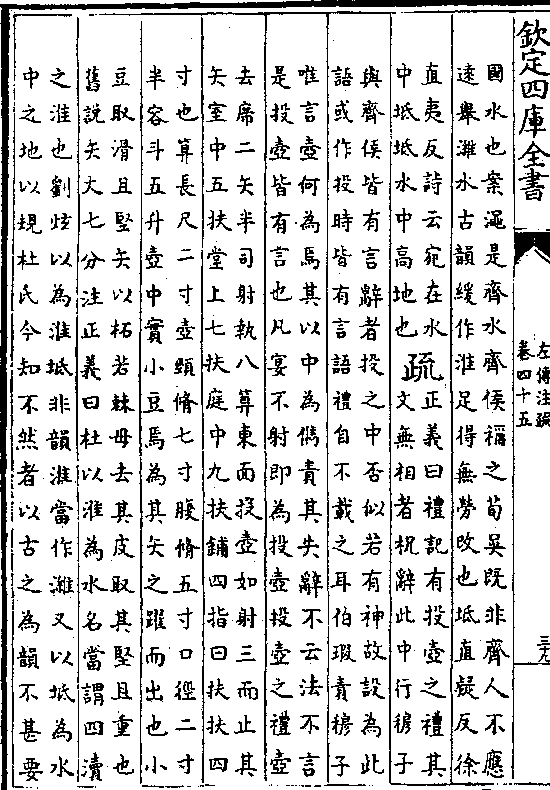 欽定四庫全書
左傳注疏
卷四十五
三十九
國水也案澠是齊水齊侯稱之荀吳既非齊人不應
遠舉濰水古韻緩作淮足得無勞改也坻直疑反徐
直夷反詩云宛在水
中坻坻水中高地也
疏
正義曰禮記有投壺之禮其
文無相者祝辭此中行穆子
與齊侯皆有言辭者投之中否似若有神故設為此
語或作投時皆有言語禮自不載之耳伯瑕責穆子
唯言壺何為焉其以中為儁責其失辭不云法不言
是投壺皆有言也凡宴不射即為投壺投壺之禮壺
去席二矢半司射執八算東面投壺如射三而止其
矢室中五扶堂上七扶庭中九扶鋪四指曰扶扶四
寸也算長尺二寸壺頸脩七寸腹脩五寸口徑二寸
半容斗五升壺中實小豆焉為其矢之躍而出也小
豆取滑且堅矢以柘若棘毋去其皮取其堅且重也
舊說矢大七分注正義曰杜以淮為水名當謂四瀆
之淮也劉炫以為淮坻非韻淮當作濰又以坻為水
中之地以規杜氏今知不然者以古之為韻不甚要